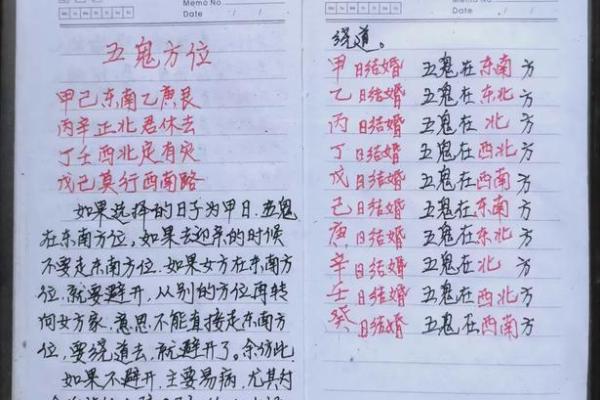 Date
五鬼方位
甲己东南乙庚艮
丙辛正北君休去
丁壬西北定有灾
戊己莫行西南路
如果选择的日子为甲日.五鬼
在东南方位,如果去迎亲的时候
不要走东南方位.如果女方在东南方
位.就要避开,从别的方位再转
向女方家,意思不能直接走东南方
位,要绕道去,就避开了。余仿此
如果不避开,主要易病,尤其对
Memo No
Date / /
绕道。
甲日结婚 五鬼在东南方
乙日结婚 五鬼在东北方
丙日结婚 五鬼在 北 方
丁日结婚 五鬼在西北方
戊日结婚 五鬼在西南方
己日结婚 五鬼在东南方
庚日结婚 五鬼在东北方
辛日结婚 五鬼在北 方
壬日结婚 五鬼在西北方
癸日结婚 五鬼在西南方